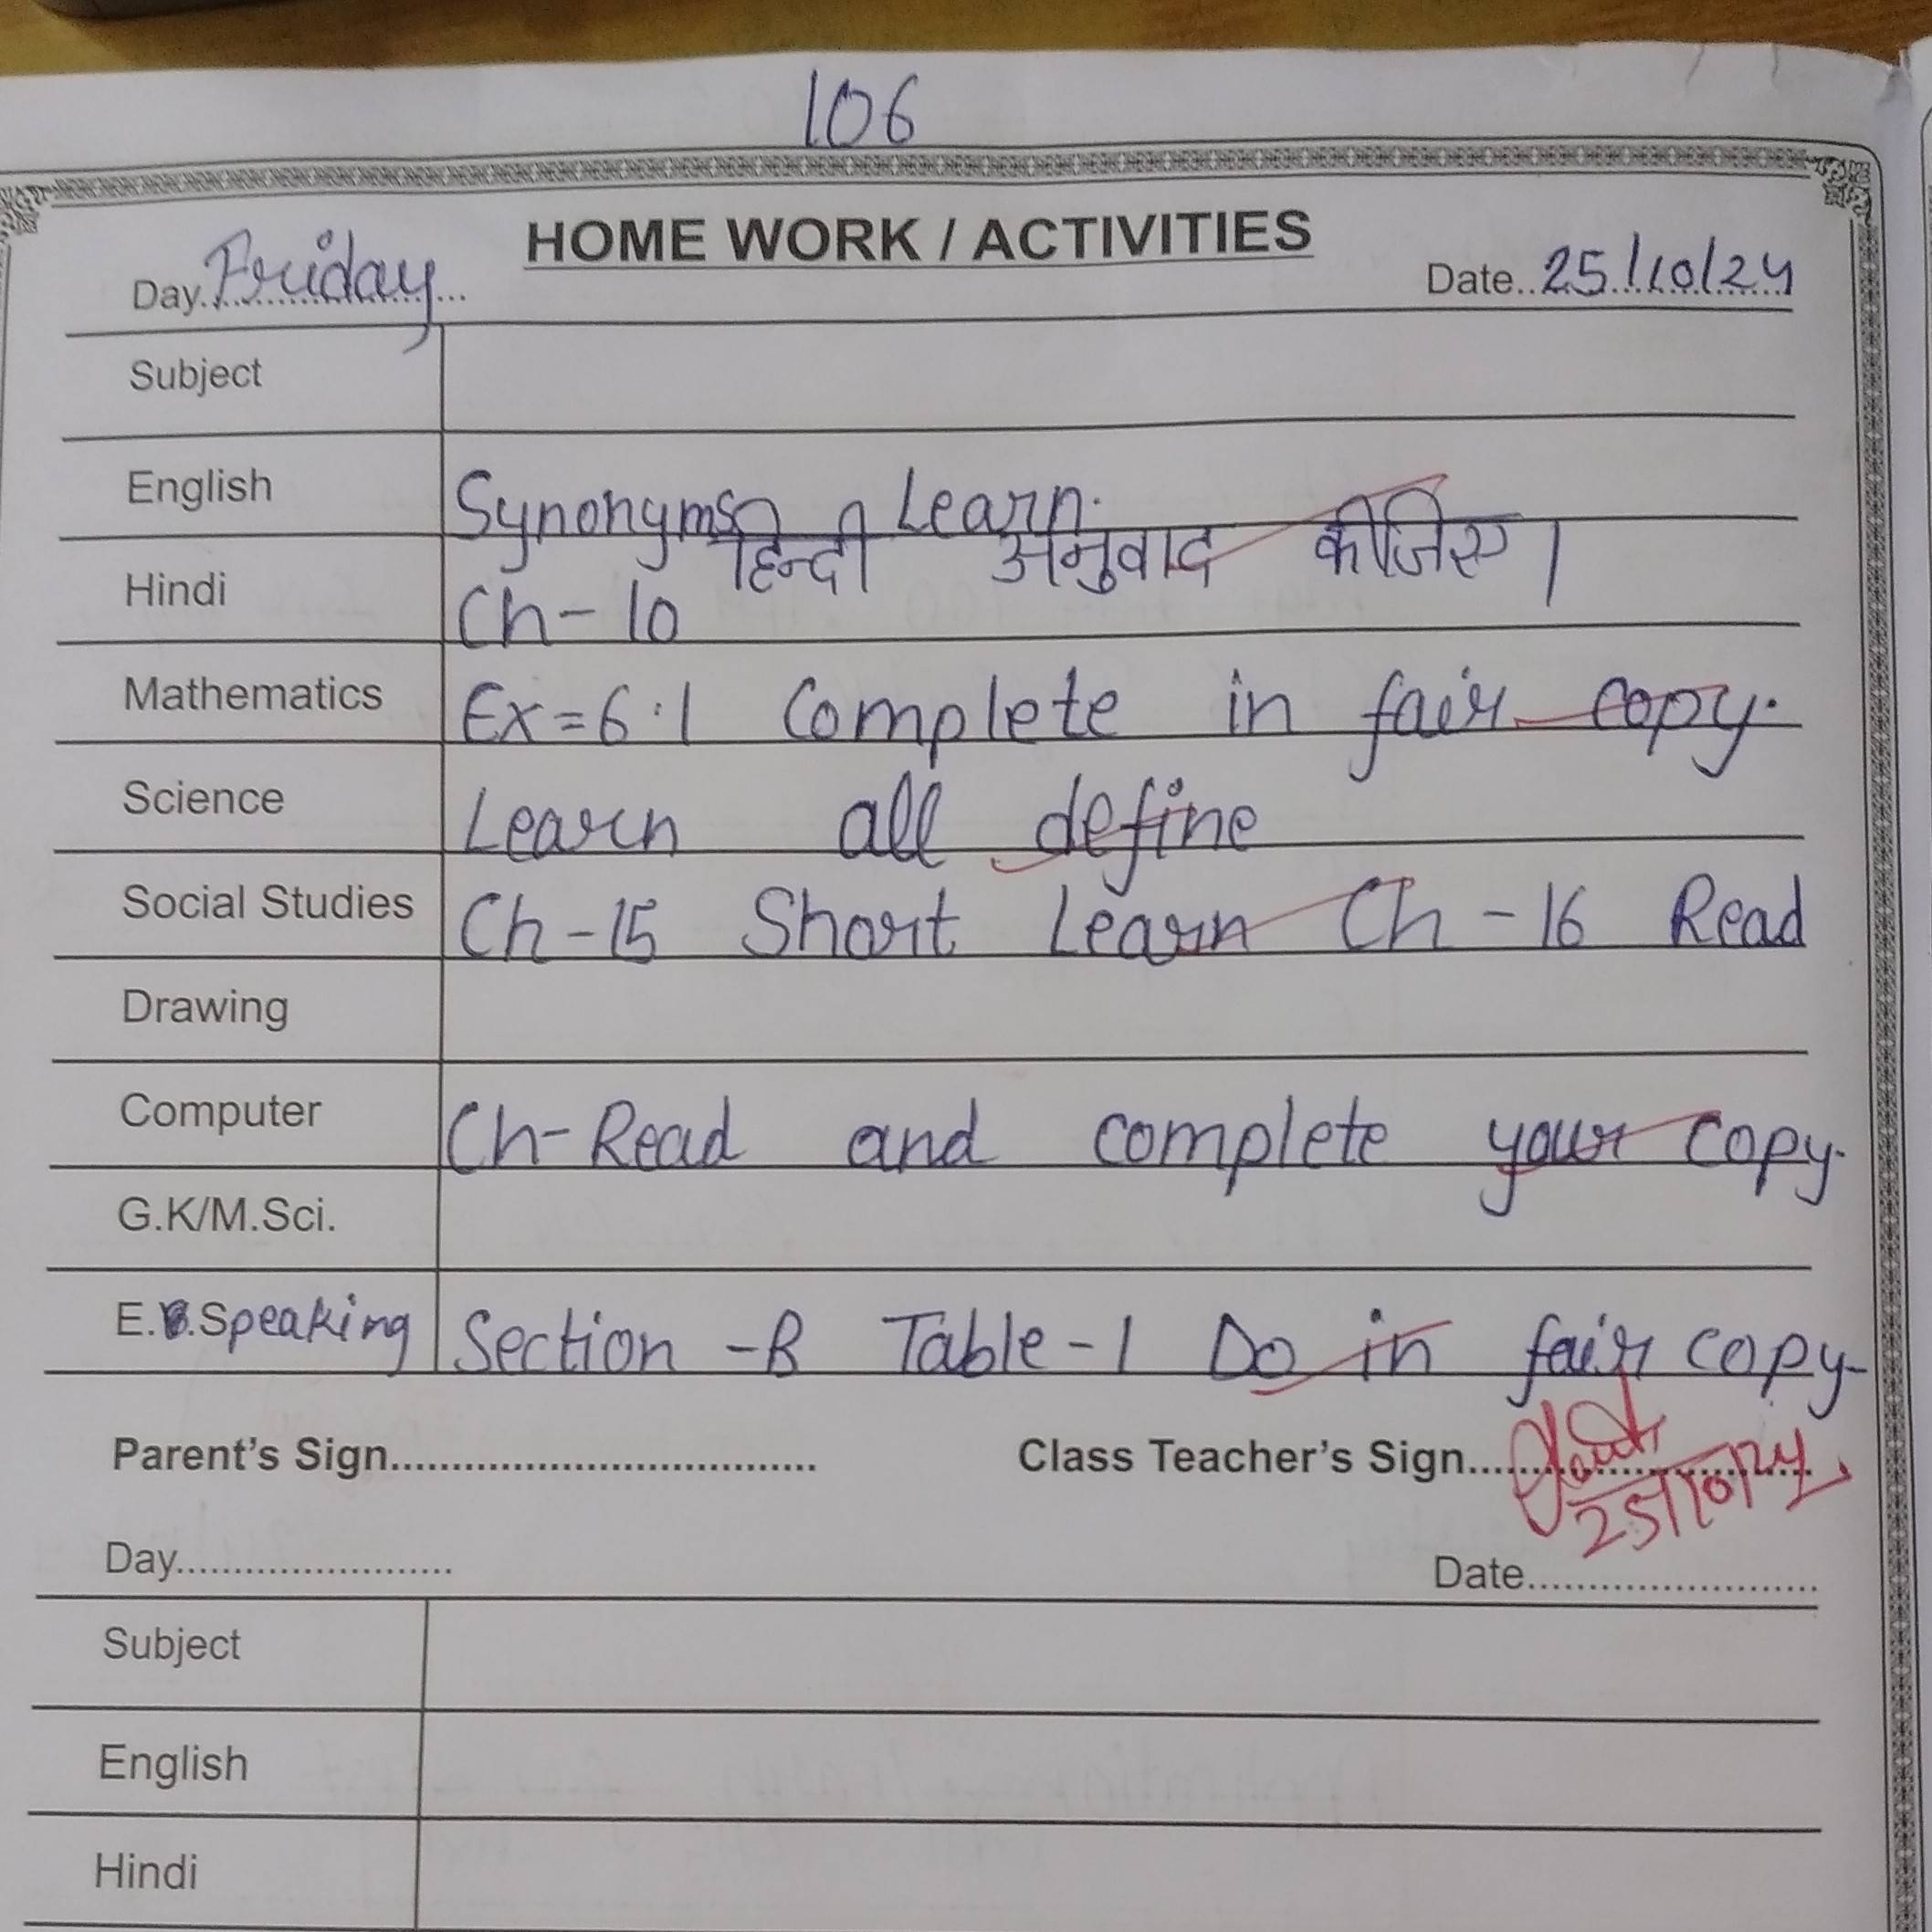 106
HOME WORK / ACTIVITIES
Day.Friday... Date..25/10/24
Subject
English Synonyms Learn.
Hindi Ch-10 हिन्दी अनुवाद कीजिए।
Mathematics Ex=6.1 Complete in fair copy.
Science Learn all define
Social Studies Ch-15 Short Learn Ch-16 Read
Drawing
Computer Ch-Read and complete your copy.
G.K/M.Sci.
E.Speaking Section-B Table-1 Do in fair copy-
Parent's Sign.................................... Class Teacher's Sign...
25/10/24
Day........................ Date..........................
Subject
English
Hindi